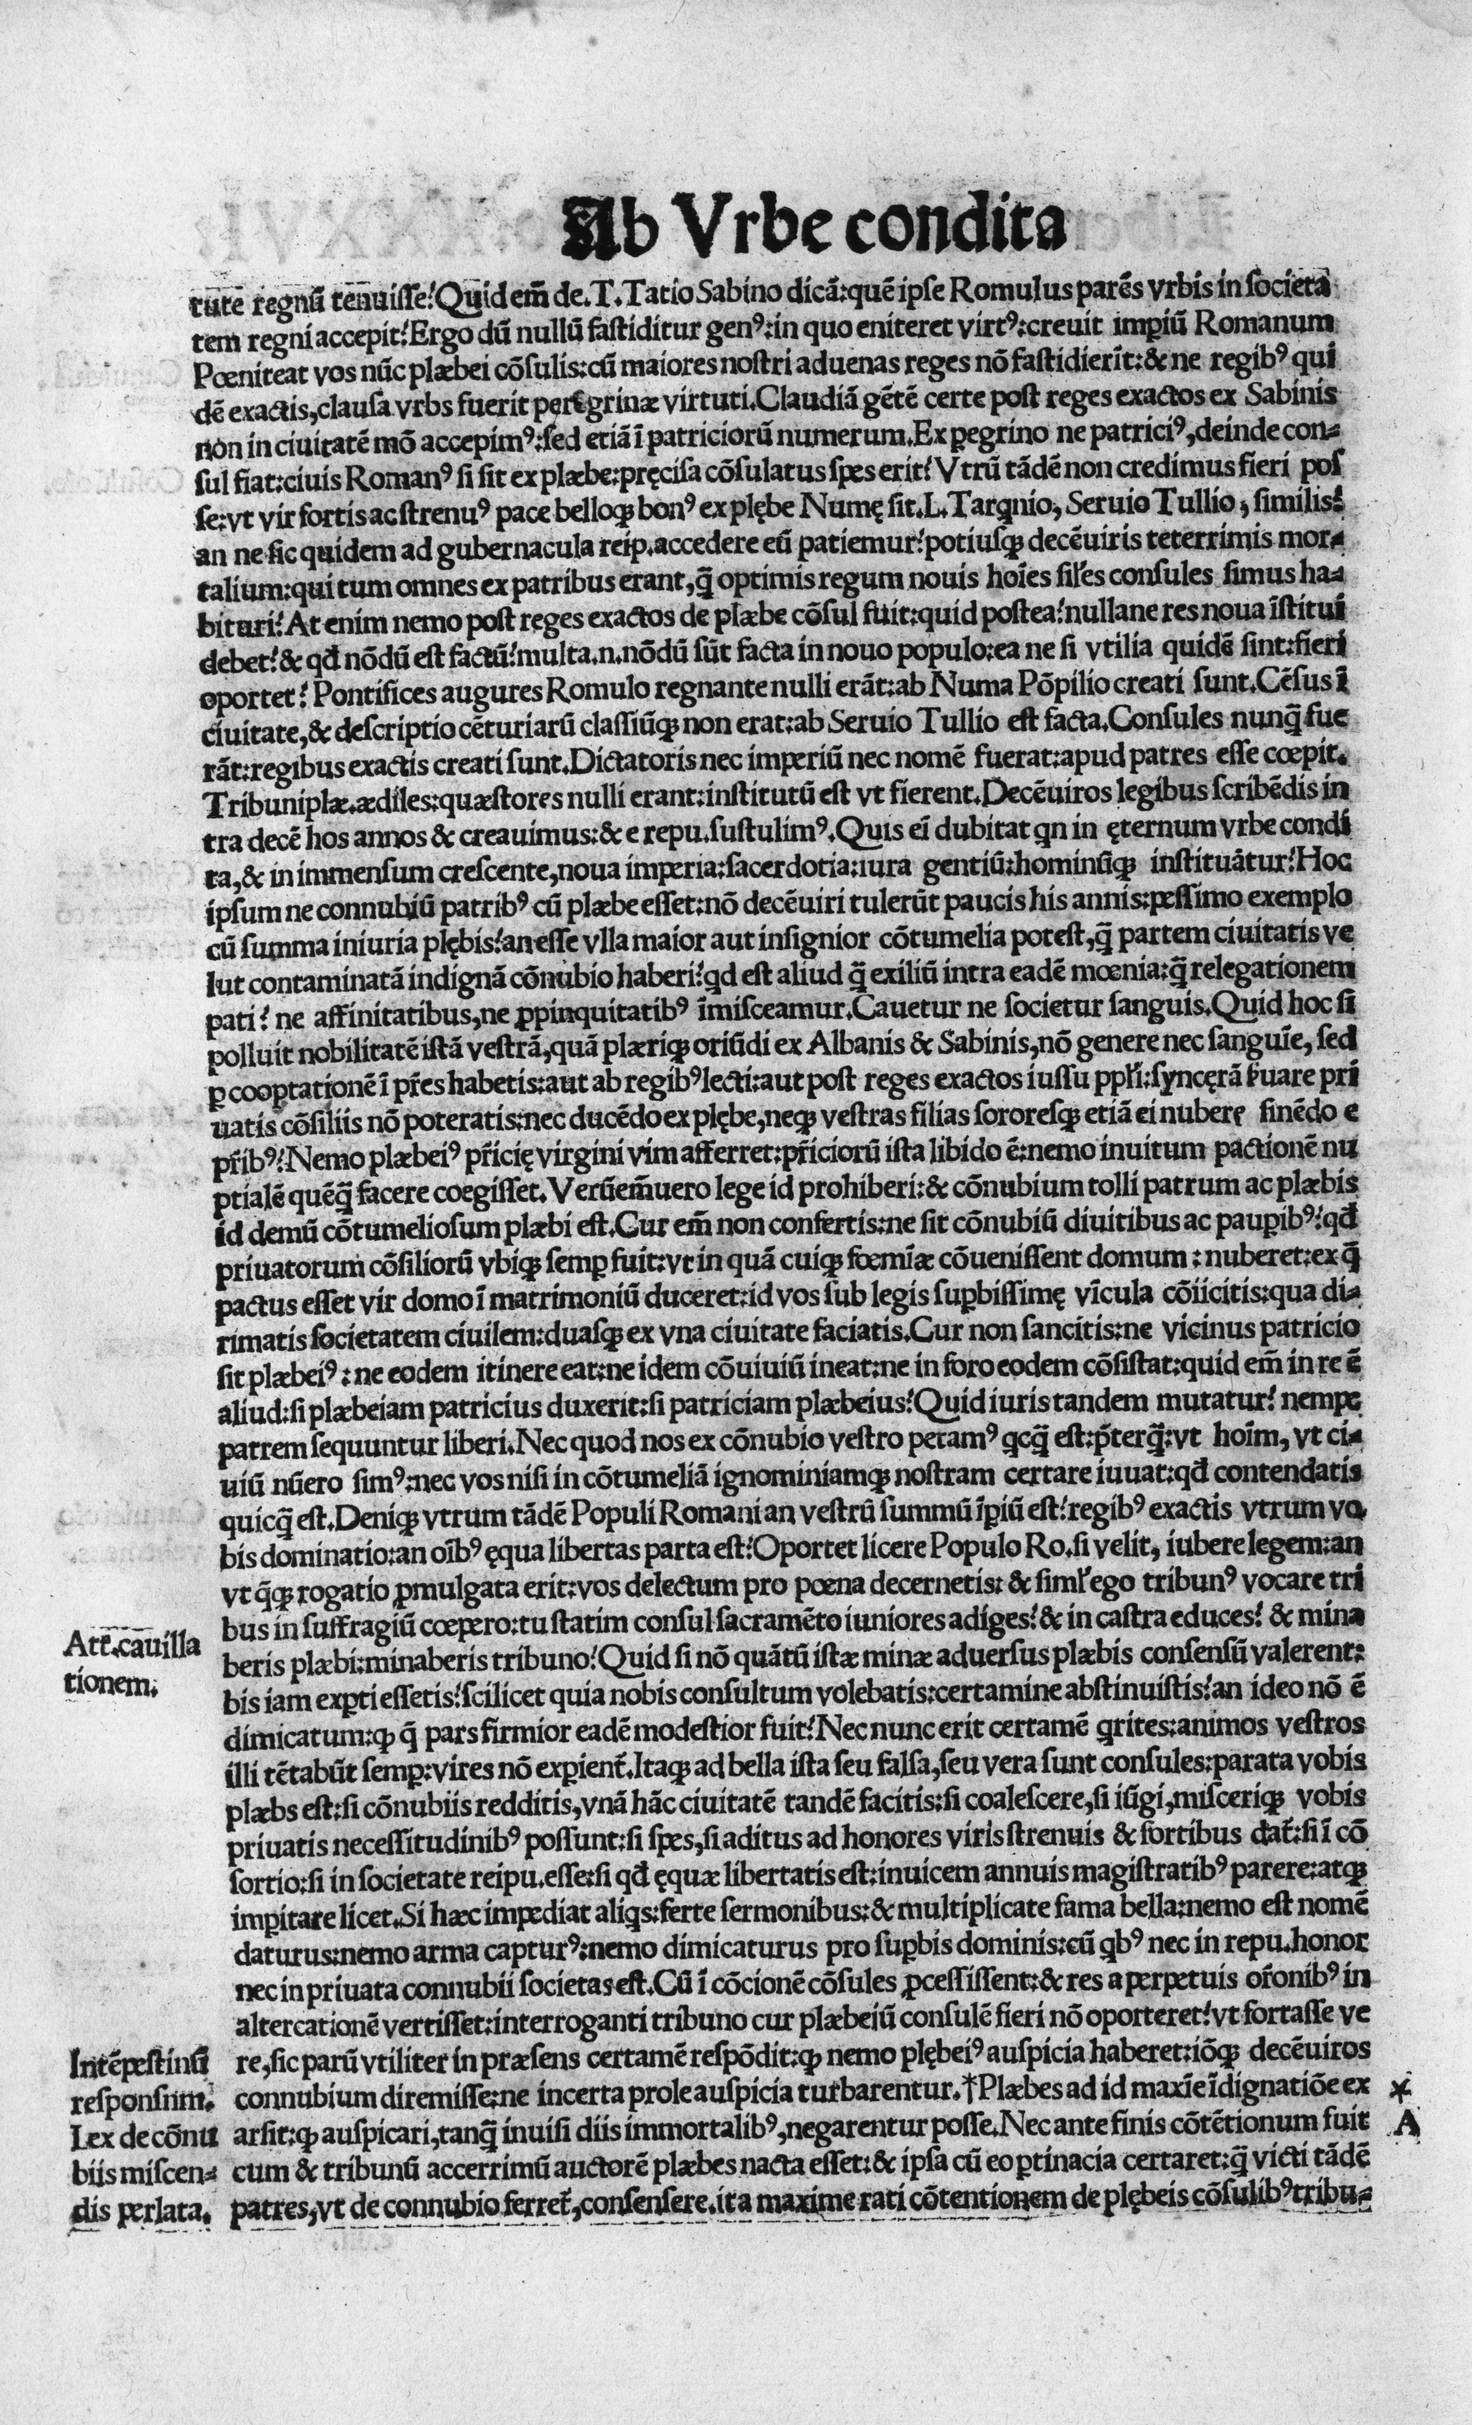 Ab Vrbe condita
tutē regnū tenuisse?Quid em̄ de.T.Tatio Sabino dicā:quē ipse Romulus parēs vrbis in societa
tem regni accepit?Ergo dū nullū fastiditur genꝰ:in quo eniteret virtꝰ:creuit imꝑiū Romanum
Pœniteat vos nūc plæbei cōsulis:cū maiores nostri aduenas reges nō fastidierīt:& ne regibꝰ qui
dē exactis,clausa vrbs fuerit peregrinæ virtuti.Claudiā gētē certe post reges exactos ex Sabinis
non in ciuitatē mō accepimꝰ:sed etiā ī patriciorū numerum.Ex ꝑegrino ne patriciꝰ,deinde con-
sul fiat:ciuis Romanꝰ si sit ex plæbe:pręcisa cōsulatus spes erit?Vtrū tādē non credimus fieri pos
se:vt vir fortis ac strenuꝰ pace belloqꝫ bonꝰ ex plębe Numę sit.L.Tarqnio, Seruio Tullio, similis?
an ne sic quidem ad gubernacula reip.accedere eū patiemur?potiusqꝫ decēuiris teterrimis mor-
talium:qui tum omnes ex patribus erant,q̄ optimis regum nouis hoīes sil'es consules simus ha-
bituri?At enim nemo post reges exactos de plæbe cōsul fuit:quid postea?nullane res noua īstitui
debet?& qđ nōdū est factū?multa.n.nōdū sūt facta in nouo populo:ea ne si vtilia quidē sint:fieri
oportet?Pontifices augures Romulo regnante nulli erāt:ab Numa Pōpilio creati sunt.Cēsus ī
ciuitate,& descriptio cēturiarū classiūqꝫ non erat:ab Seruio Tullio est facta.Consules nunq̄ fue
rāt:regibus exactis creati sunt.Dictatoris nec imperiū nec nomē fuerat:apud patres esse cœpit.
Tribuni plæ.ædiles:quæstores nulli erant:institutū est vt fierent.Decēuiros legibus scribēdis in
tra decē hos annos & creauimus:& e repu.sustulimꝰ.Quis eī dubitat qn in ęternum vrbe condi
ta,& in immensum crescente,noua imperia:sacerdotia:iura gentiū:hominūqꝫ instituātur?Hoc
ipsum ne connubiū patribꝰ cū plæbe esset:nō decēuiri tulerūt paucis his annis:pessimo exemplo
cū summa iniuria plębis?an esse vlla maior aut insignior cōtumelia potest,q̄ partem ciuitatis ve
lut contaminatā indignā cōnubio haberi?qd est aliud q̄ exiliū intra eadē mœnia:q̄ relegationem
pati? ne affinitatibus,ne ꝓpinquitatibꝰ īmisceamur.Cauetur ne societur sanguis.Quid hoc si
polluit nobilitatē istā vestrā,quā plæriqꝫ oriūdi ex Albanis & Sabinis,nō genere nec sanguīe, sed
ꝑ cooptationē ī pr̄es habetis:aut ab regibꝰ lecti:aut post reges exactos iussu ppl'i:syncęrā ẜuare pri
uatis cōsiliis nō poteratis:nec ducēdo ex plębe,neqꝫ vestras filias sororesqꝫ etiā ei nuberę sinēdo e
pr̄ibꝰ?Nemo plæbeiꝰ pr̄icię virgini vim afferret:pr̄iciorū ista libido ē:nemo inuitum pactionē nu
ptialē quēq̄ facere coegisset.Verūem̄uero lege id prohiberi:& cōnubium tolli patrum ac plæbis
id demū cōtumeliosum plæbi est.Cur em̄ non confertis:ne sit cōnubiū diuitibus ac pauꝑibꝰ?qđ
priuatorum cōsiliorū vbiqꝫ semꝑ fuit:vt in quā cuiqꝫ fœmīæ cōuenissent domum:nuberet:ex q̄
pactus esset vir domo ī matrimoniū duceret:id vos sub legis suꝑbissimę vīcula cōiicitis:qua di-
rimatis societatem ciuilem:duasqꝫ ex vna ciuitate faciatis.Cur non sancitis:ne vicinus patricio
sit plæbeiꝰ:ne eodem itinere eat:ne idem cōuiuiū ineat:ne in foro eodem cōsistat:quid em̄ in re ē
aliud:si plæbeiam patricius duxerit:si patriciam plæbeius?Quid iuris tandem mutatur? nempe
patrem sequuntur liberi.Nec quod nos ex cōnubio vestro petamꝰ qcq̄ est:p̄terq̄:vt hoīm, vt ci-
uiū nūero simꝰ:nec vos nisi in cōtumeliā ignominiamqꝫ nostram certare iuuat:qđ contendatis
quicq̄ est.Deniqꝫ vtrum tādē Populi Romani an vestrū summū īꝑiū est?regibꝰ exactis vtrum vo
bis dominatio:an oībꝰ ęqua libertas parta est?Oportet licere Populo Ro.si velit, iubere legem:an
vt q̄qꝫ rogatio ꝓmulgata erit:vos delectum pro pœna decernetis: & siml' ego tribunꝰ vocare tri
bus in suffragiū cœpero:tu statim consul sacramēto iuniores adiges?& in castra educes? & mina
Att̄.cauilla
tionem.
beris plæbi:minaberis tribuno?Quid si nō quātū istæ minæ aduersus plæbis consensū valerent:
bis iam exꝑti essetis?scilicet quia nobis consultum volebatis:certamine abstinuistis?an ideo nō ē
dimicatum:qꝫ q̄ pars firmior eadē modestior fuit?Nec nunc erit certamē qrites:animos vestros
illi tētabūt semꝑ:vires nō exꝑient̄.Itaqꝫ ad bella ista seu falsa,seu vera sunt consules:parata vobis
plæbs est:si cōnubiis redditis,vnā hāc ciuitatē tandē facitis:si coalescere,si iūgi,misceriqꝫ vobis
priuatis necessitudinibꝰ possunt:si spes,si aditus ad honores viris strenuis & fortibus dat̄:si ī cō
sortio:si in societate reipu.esse:si qđ ęquæ libertatis est:inuicem annuis magistratibꝰ parere:atqꝫ
imꝑitare licet.Si hæc impediat aliqs:ferte sermonibus:& multiplicate fama bella:nemo est nomē
daturus:nemo arma capturꝰ:nemo dimicaturus pro suꝑbis dominis:cū qbꝰ nec in repu.honor
nec in priuata connubii societas est.Cū ī cōcionē cōsules ꝓcessissent:& res a perpetuis or̄onibꝰ in
altercationē vertisset:interroganti tribuno cur plæbeiū consulē fieri nō oporteret?vt fortasse ve
Intēpestinū
responsum.
Lex de cōnu
biis miscen-
dis perlata.
re,sic parū vtiliter in præsens certamē respōdit:qꝫ nemo plębeiꝰ auspicia haberet:iōqꝫ decēuiros
connubium diremisse:ne incerta prole auspicia turbarentur.†Plæbes ad id maxīe īdignatiōe ex
arsit:qꝫ auspicari,tanq̄ inuisi diis immortalibꝰ,negarentur posse.Nec ante finis cōtētionum fuit
cum & tribunū accerrimū auctorē plæbes nacta esset:& ipsa cū eo ꝑtinacia certaret:q̄ victi tādē
patres,vt de connubio ferret̄,consensere.ita maxime rati cōtentionem de plębeis cōsulibꝰ tribu-
*
A